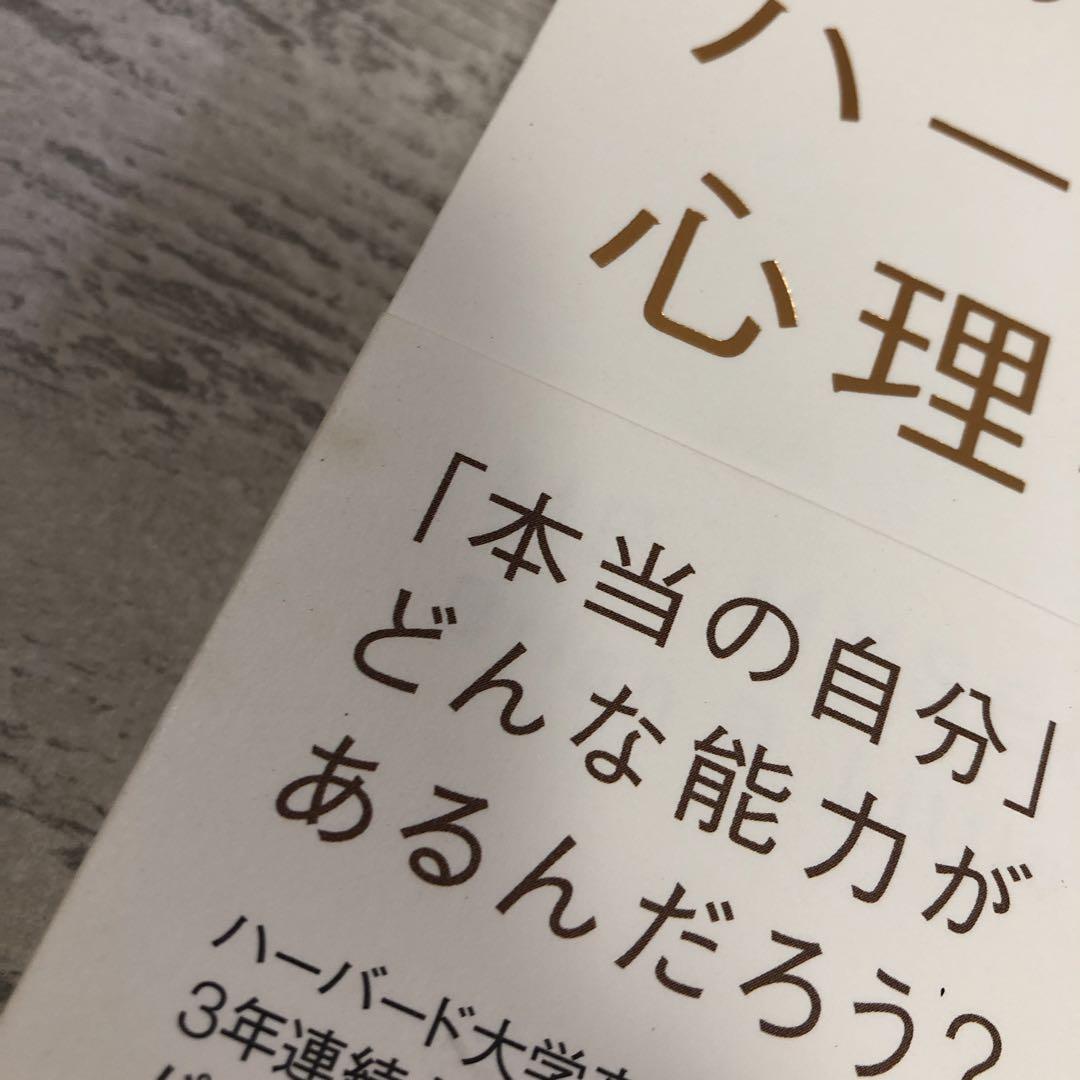 ハー
心理
「本当の自分」
どんな能力が
あるんだろう?
ハーバード大学
3年連続